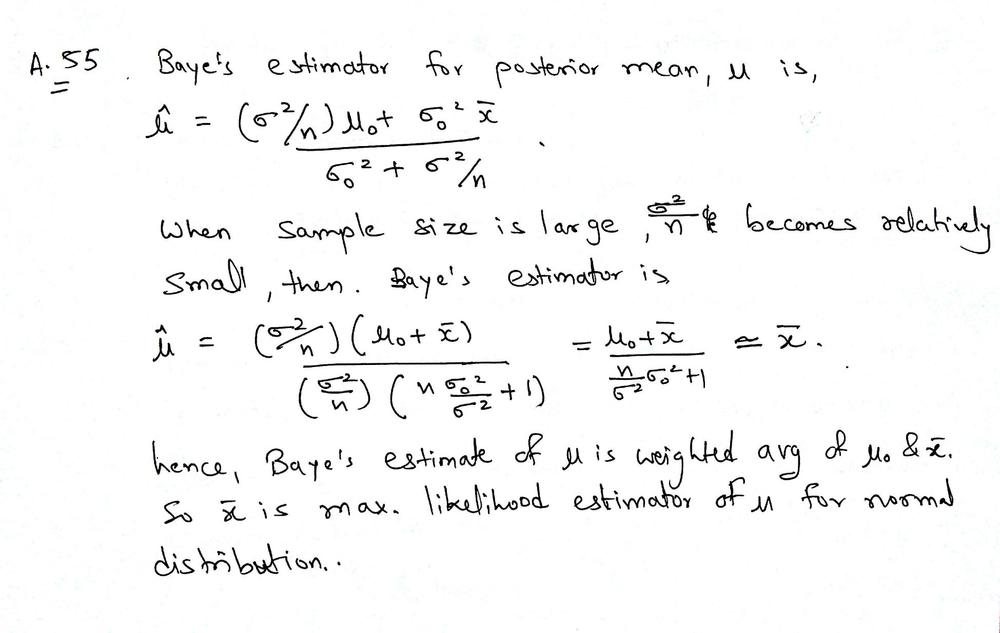 A. 55 . Baye's estimator for posterior mean, μ is,
μ̂ = ((σ²/n) μ₀ + σ₀² x̄) / (σ₀² + σ²/n) .
When sample size is large, σ²/n becomes relatively
small, then. Baye's estimator is
μ̂ = (σ²/n)(μ₀ + x̄) / (σ²/n)(n σ₀²/σ² + 1) = (μ₀ + x̄) / (n/σ² σ₀² + 1) ≃ x̄.
hence, Baye's estimate of μ is weighted avg of μ₀ & x̄.
So x̄ is max. likelihood estimator of μ for normal
distribution..